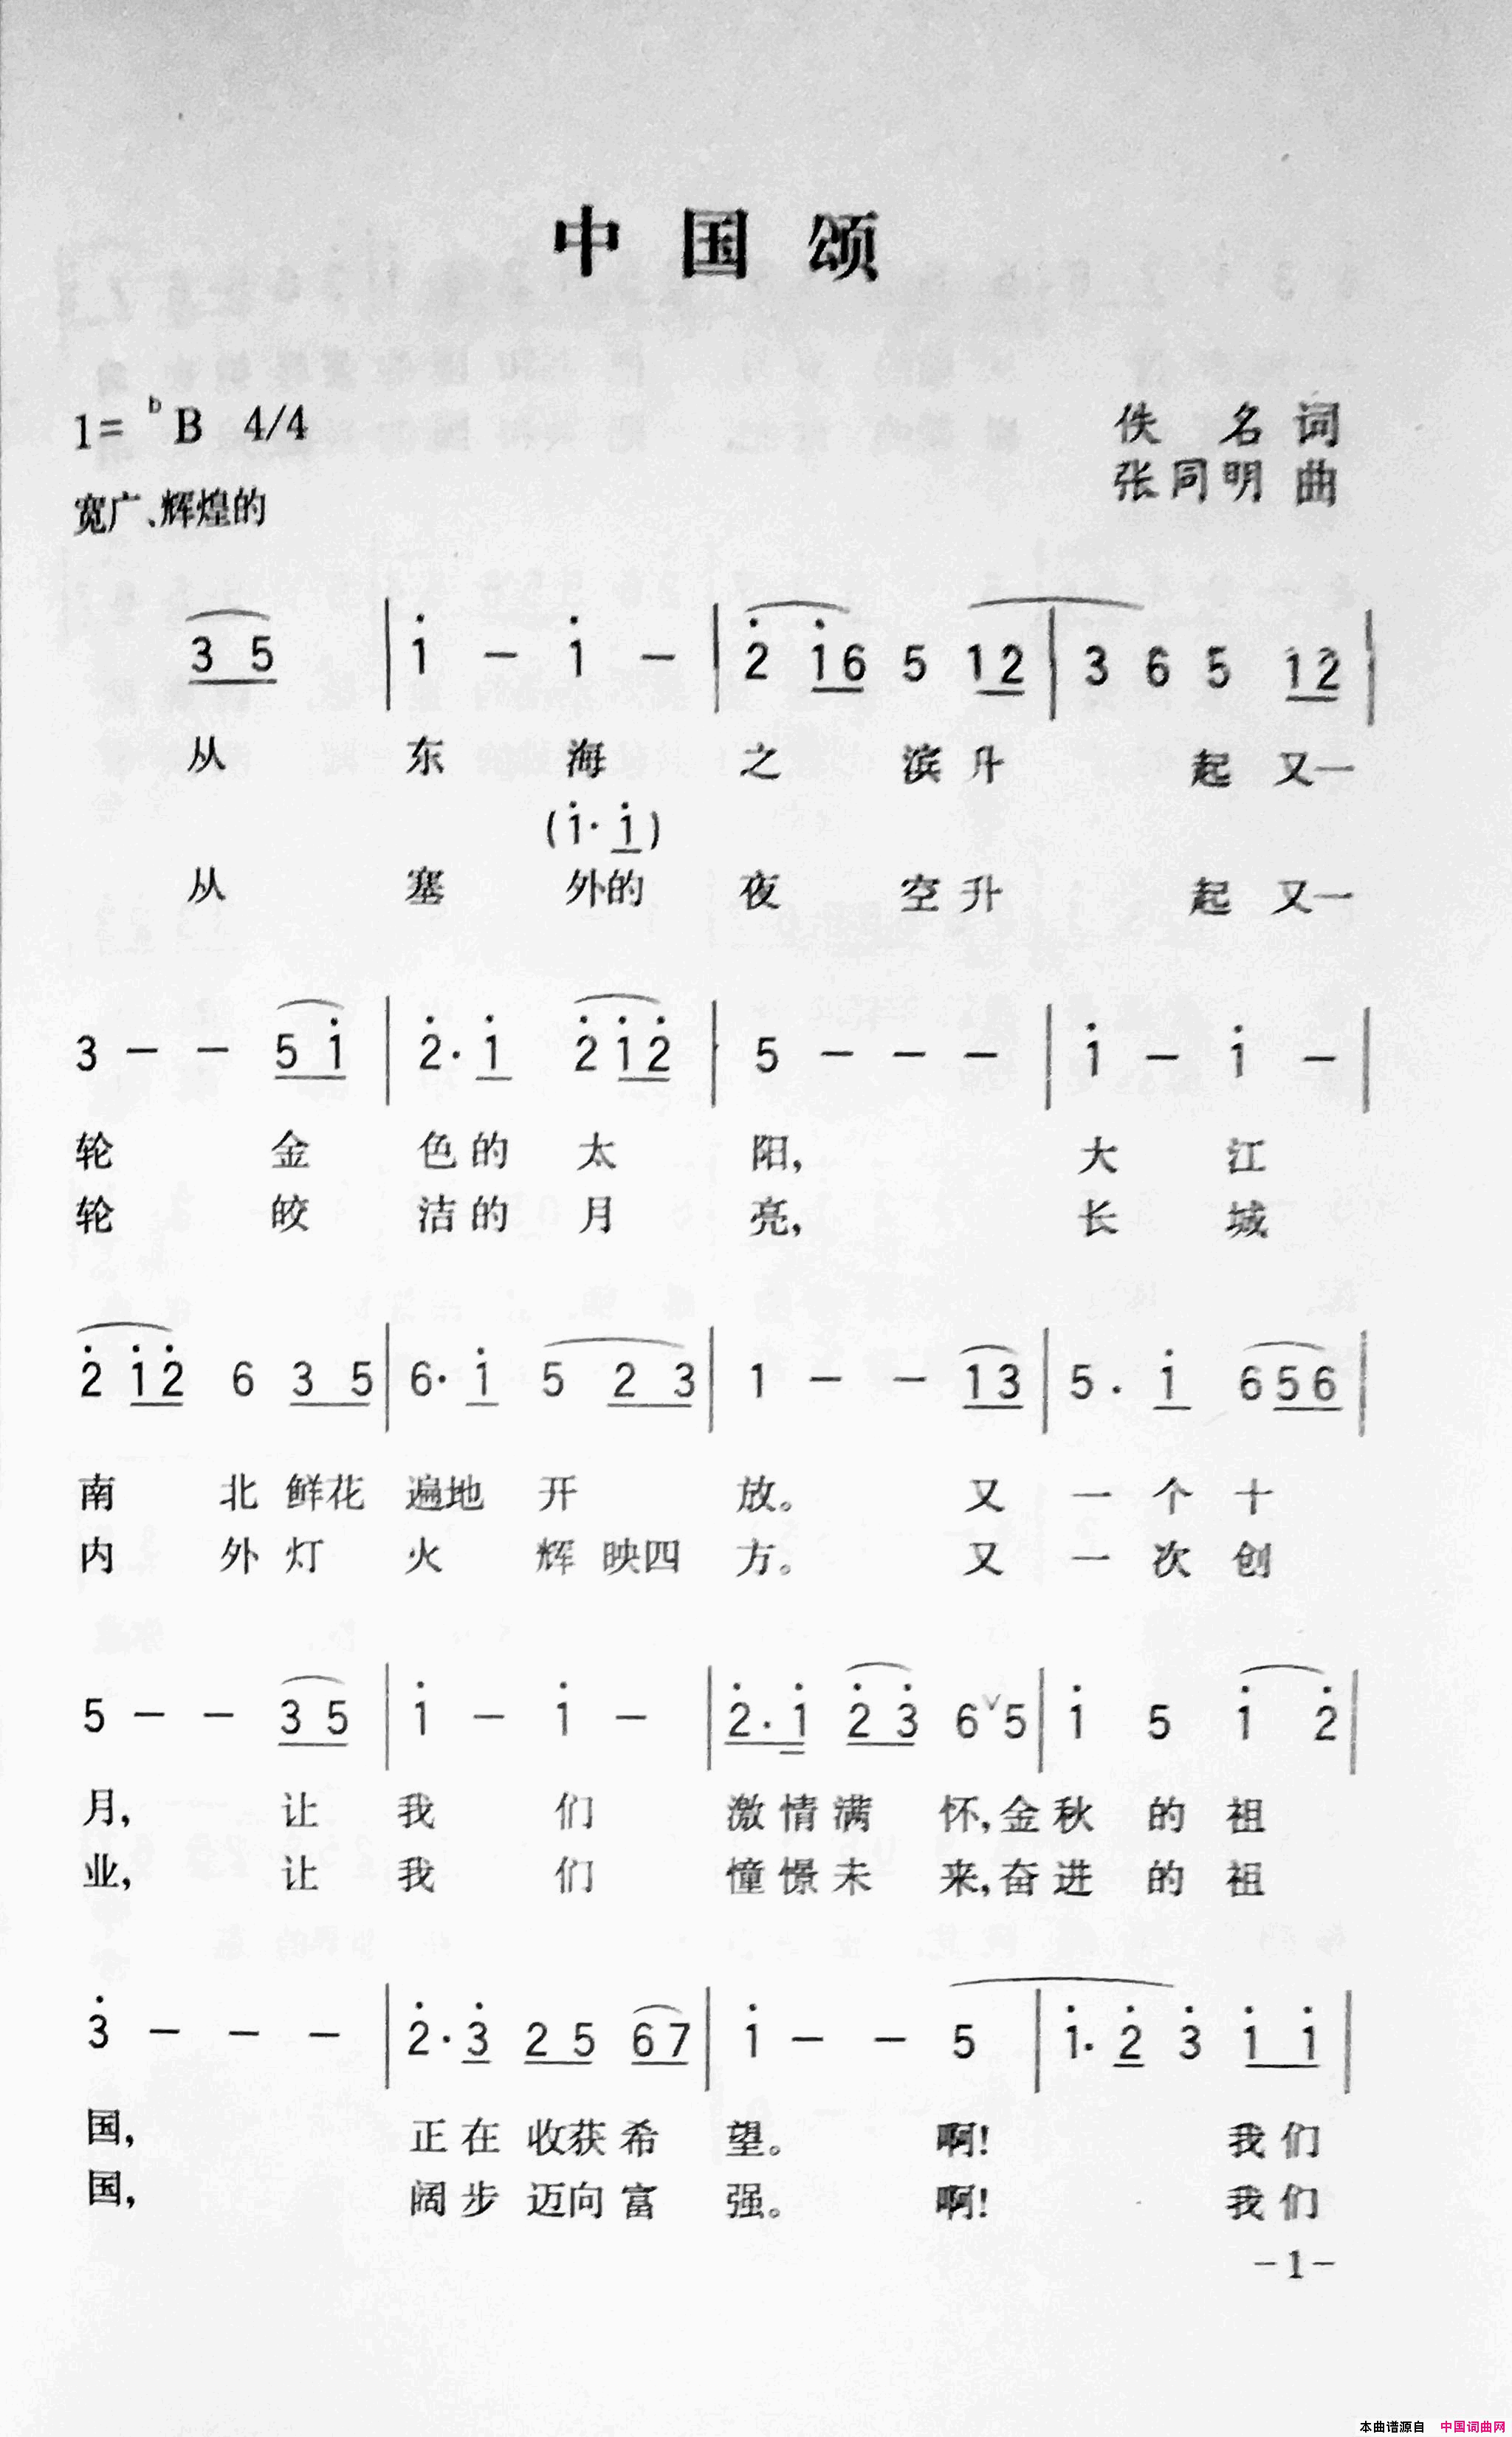 中国颂
1= ᵇB 4/4
佚 名 词
张同明 曲
宽广、辉煌的
3 5 | i̇ — i̇ — | 2̇ i̇6 5 12 | 3 6 5 12 |
从 东 海 之 滨 升 起 又一
(i̇· i̇)
从 塞 外的 夜 空 升 起 又一
3 — — 5 i̇ | 2̇· i̇ 2̇ i̇2̇ | 5 — — — | i̇ — i̇ — |
轮 金 色的 太 阳, 大 江
轮 皎 洁的 月 亮, 长 城
2̇ i̇2̇ 6 3 5 | 6· i̇ 5 2 3 | 1 — — 13 | 5· i̇ 6 56 |
南 北 鲜花 遍地 开 放。 又 一 个 十
内 外 灯 火 辉 映四 方。 又 一 次 创
5 — — 3 5 | i̇ — i̇ — | 2̇· i̇ 2̇ 3̇ 6ᵛ5 | i̇ 5 i̇ 2̇ |
月, 让 我 们 激情满 怀,金秋 的 祖
业, 让 我 们 憧憬未 来,奋进 的 祖
3̇ — — — | 2̇· 3̇ 2 5 67 | i̇ — — 5 | i̇· 2̇ 3̇ i̇ i̇ |
国, 正在 收获 希 望。 啊! 我们
国, 阔步 迈向 富 强。 啊! 我们
-1-
本曲谱源自 中国词曲网